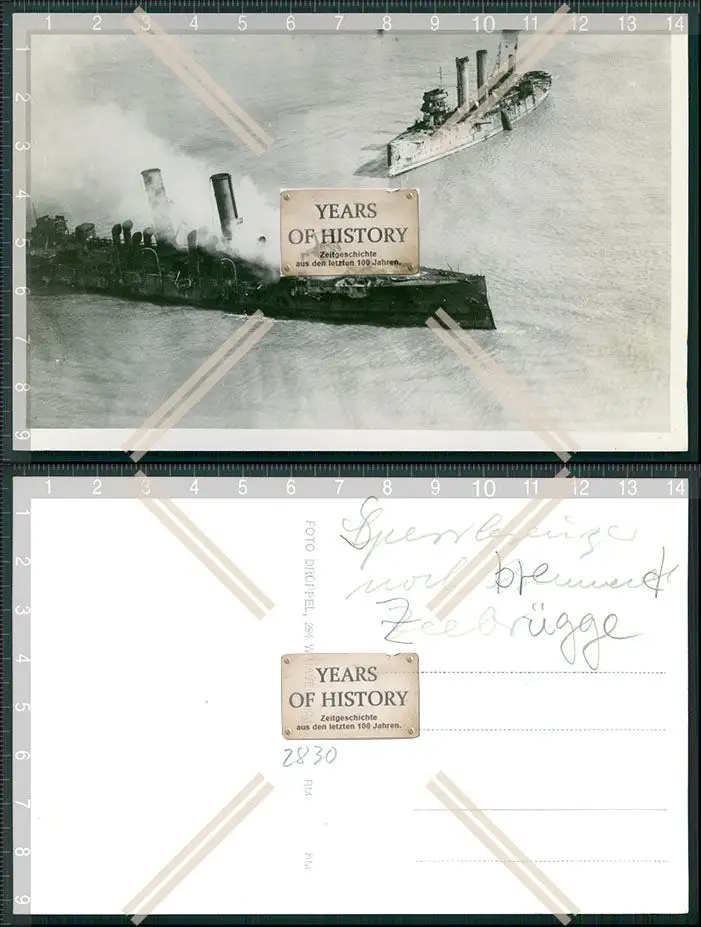 1 2 3 4 5 6 7 8 9 10 11 12 13 14
1
2
3
4
5
6
7
8
9
YEARS
OF HISTORY
Zeitgeschichte
aus den letzten 100 Jahren.
1 2 3 4 5 6 7 8 9 10 11 12 13 14
1
2
3
4
5
6
7
8
9
FOTO DRÜPPEL, 294
noch brennend
Zeebrügge
YEARS
OF HISTORY
Zeitgeschichte
aus den letzten 100 Jahren.
2830
RM